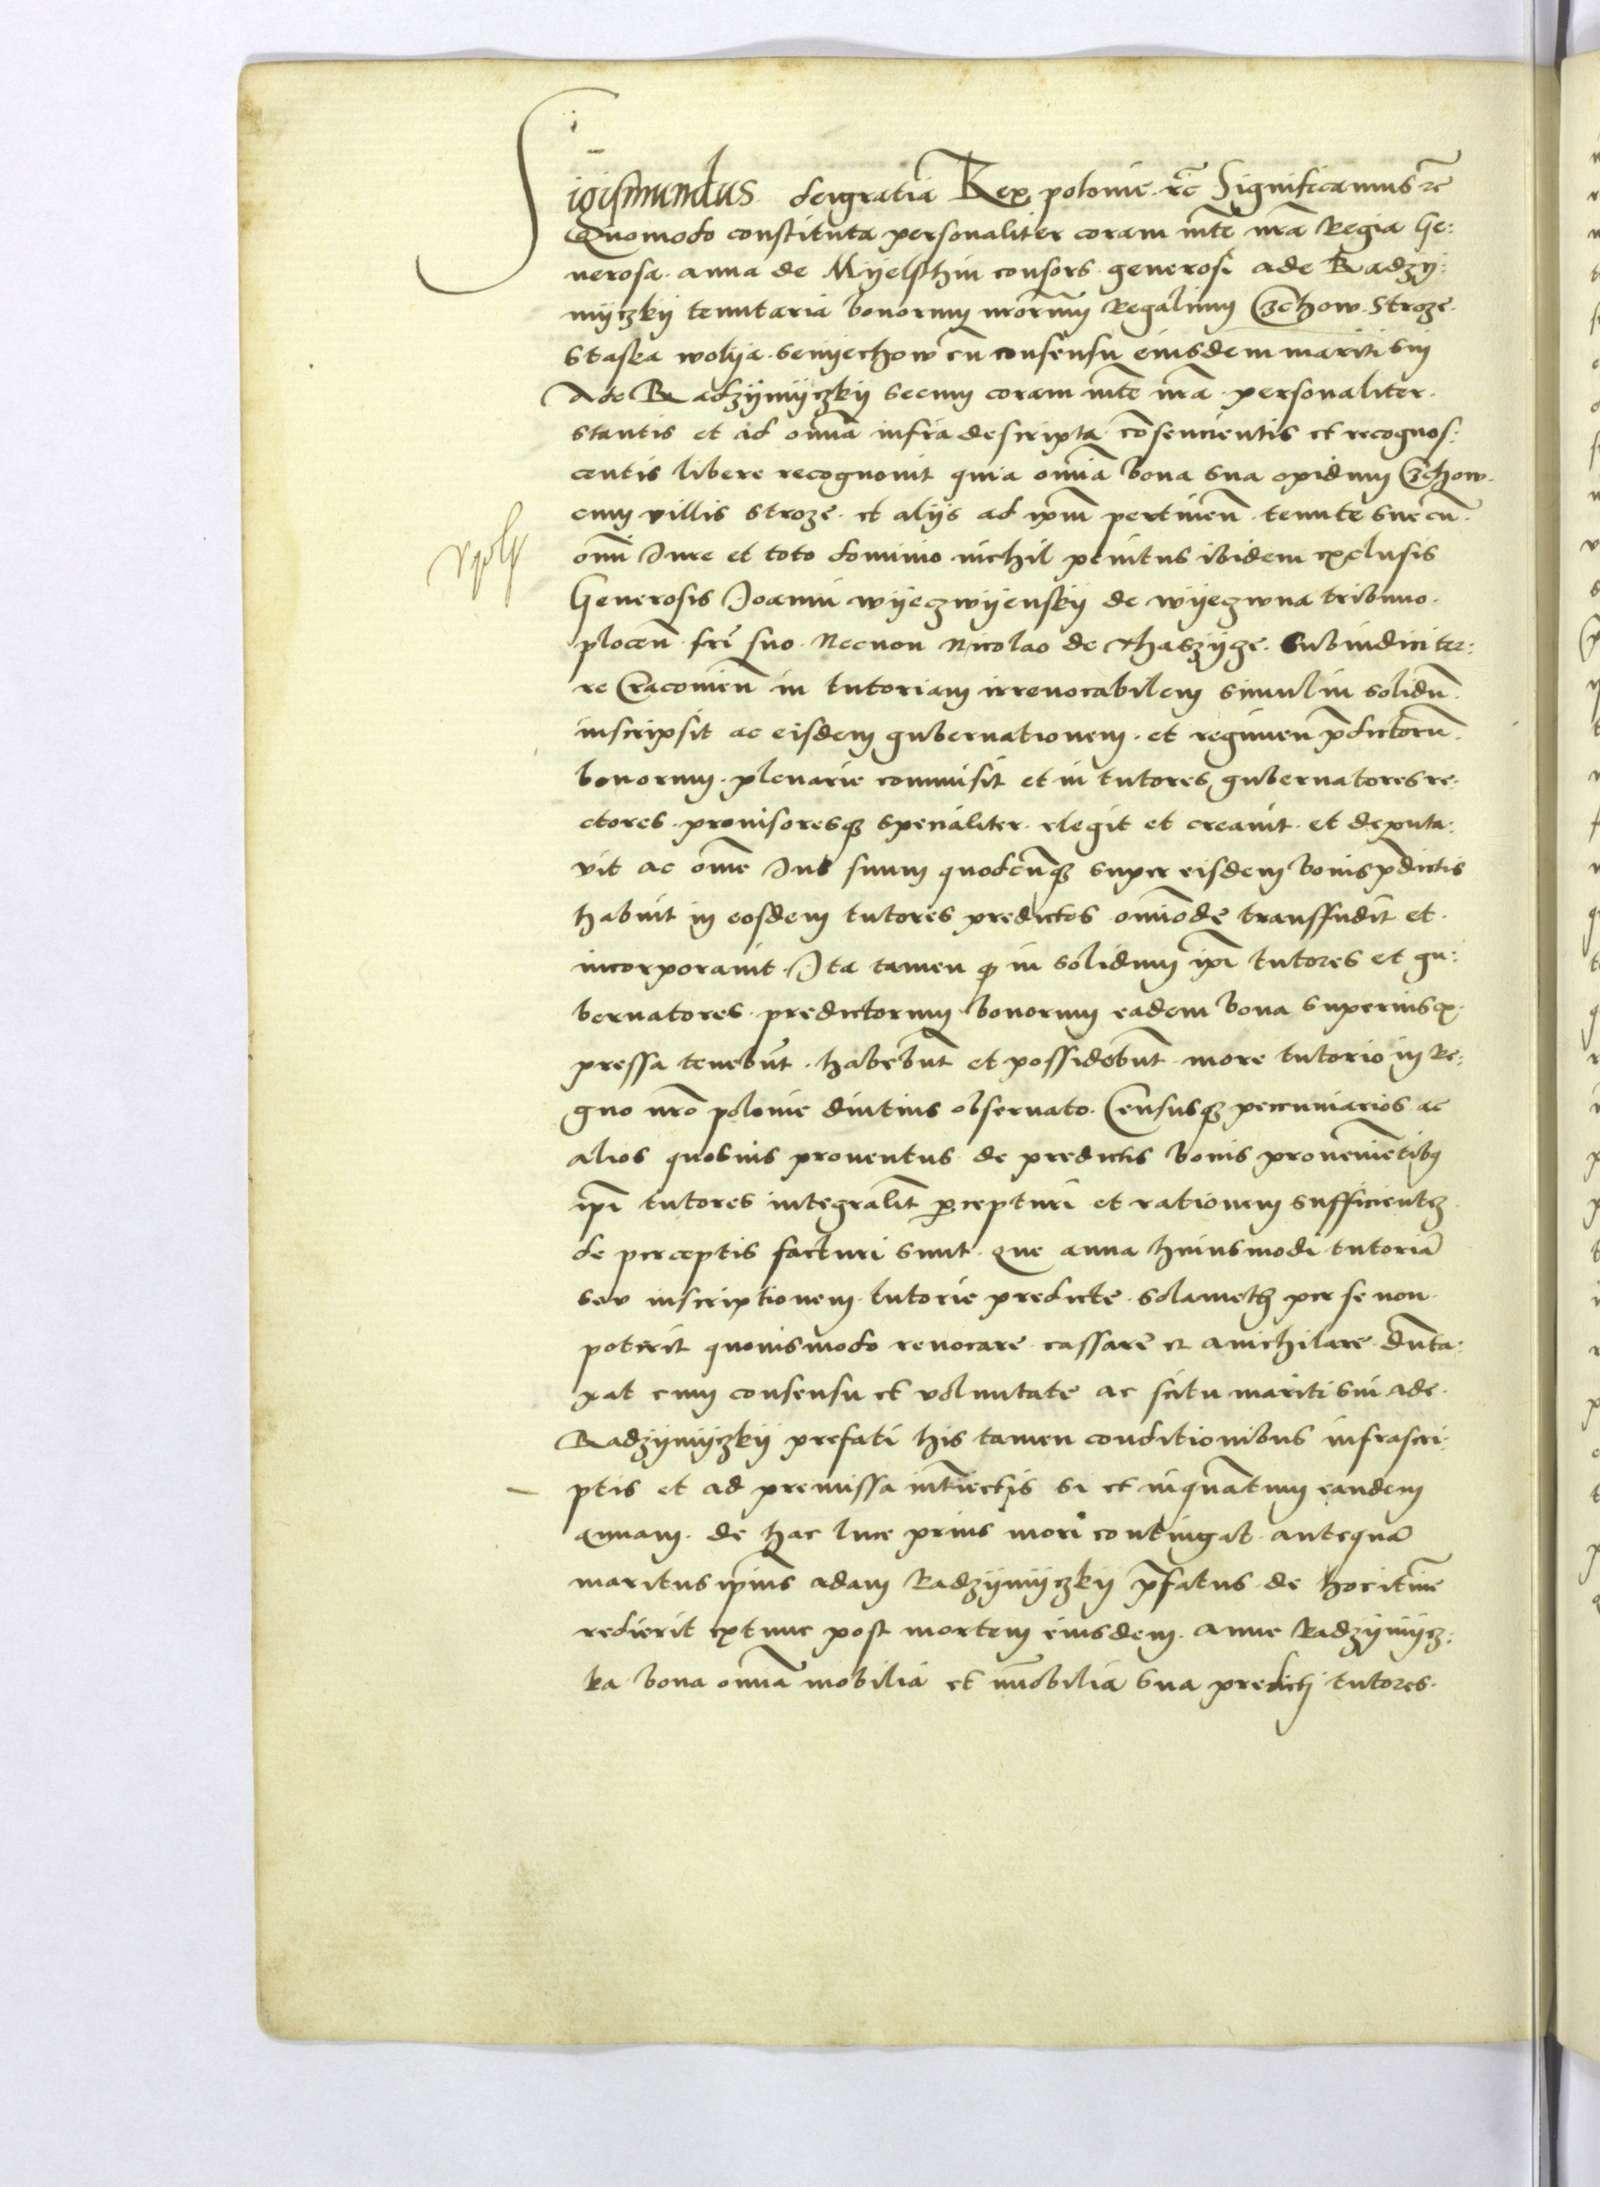 Sigismundus deigratia Rex polonie rc̃ Significamus rc
Quomodo constituta personaliter coram mte nrã Regia Ge:
nerosa anna de Myelschin consors generosi ade Radzy:
myczky tenutaria bonorum nrorum Regalium Czchow Stroze
staska wolya semyechow cũ consensu eiusdem mariti sui
Ade Radzymyczky secum coram mte nrã personaliter
stantis et ad omnia infra descripta cõsencientis et recognos:
centis libere recognouit quia omnia bona sua opidum Czchow
cum villis stroze et alijs ad ipm pertinen tenute sue cũ
omni Iure et toto dominio nichil penitus ibidem exclusis
Generosis Joanni wyeczwyensky de wyeczwna tribuno
plocen fri suo Necnon Nicolao de thaszycze Subiudici ter:
re Cracouien in tutoriam irreuocabilem simul in solidũ
inscripsit ac eisdem gubernationem et regimen pdictorũ
bonorum plenarie commisit et in tutores gubernatores re:
ctores prouisoresqʒ specialiter elegit et creauit et deputa:
vit ac ome Ius suum quodcũqʒ super eisdem bonis pdictis
habuit in eosdem tutores predictos omĩode transffudit et
incorporauit Ita tamen qp in solidum ipi tutores et gu:
bernatores predictorum bonorum eadem bona superius ex
pressa tenebũt habebũt et possidebũt more tutorio in Re:
gno nrõ polonie diutius obseruato Censusqʒ pecuniarios ac
alios quosuis prouentus de predictis bonis prouenietibus
ipi tutores integralit percepturi et rationem sufficientẽ
de perceptis facturi sunt que anna huiusmodi tutoriã
seu inscriptionem tutorie predicte solametʒ per se non
poterit quouismodo reuocare cassare et annichilare dũta:
xat cum consensu et voluntate ac scitu mariti sui ade
Radzymyczky prefati his tamen conditionibus infrascri:
ptis et ad premissa intiectis si et inquãtum eandem
annam de hac luce prius mori contingat antequã
maritus ipius adam Radzymyczky pfatus de hoc itinẽ
redierit extunc post mortem eiusdem anne Radzymycz:
ka bona omnia mobilia et imobilia sua predicti tutores